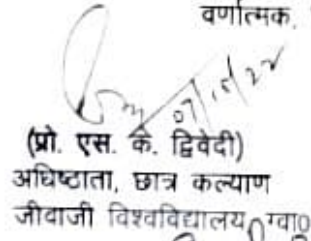 वर्णात्मक.
07/10/22
(प्रो. एस. के. द्विवेदी)
अधिष्ठाता, छात्र कल्याण
जीवाजी विश्वविद्यालय ग्वा०